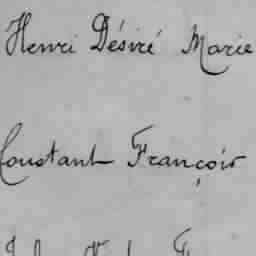 Henri Désiré Marie
Constant François